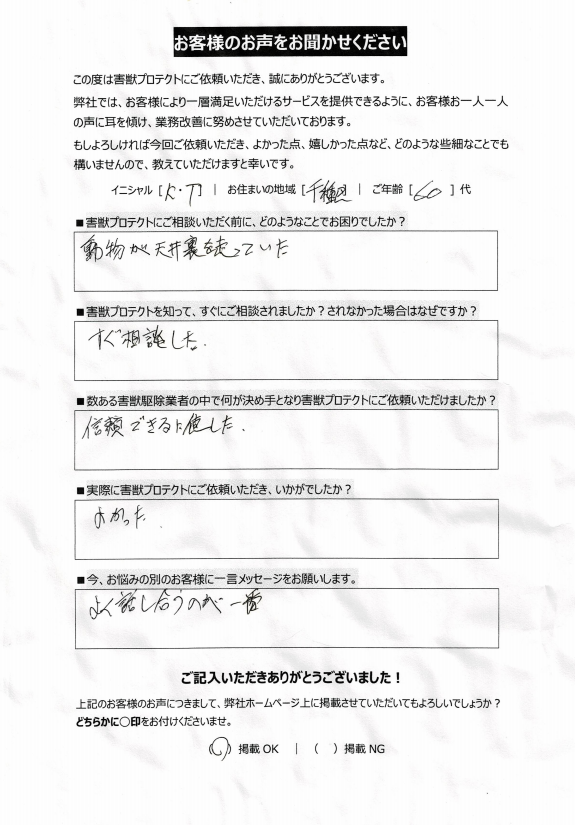 お客様のお声をお聞かせください
この度は害獣プロテクトにご依頼いただき、誠にありがとうございます。
弊社では、お客様により一層満足いただけるサービスを提供できるように、お客様お一人一人
の声に耳を傾け、業務改善に努めさせていただいております。
もしよろしければ今回ご依頼いただき、よかった点、嬉しかった点など、どのような些細なことでも
構いませんので、教えていただけますと幸いです。
イニシャル [ K・T ] | お住まいの地域 [ 千種区 ] | ご年齢 [ 60 ] 代
■害獣プロテクトにご相談いただく前に、どのようなことでお困りでしたか？
動物が天井裏を走っていた
■害獣プロテクトを知って、すぐにご相談されましたか？されなかった場合はなぜですか？
すぐ相談した.
■数ある害獣駆除業者の中で何が決め手となり害獣プロテクトにご依頼いただけましたか？
信頼できると
■実際に害獣プロテクトにご依頼いただき、いかがでしたか？
よかった.
■今、お悩みの別のお客様に一言メッセージをお願いします。
よく話し合うのが一番
ご記入いただきありがとうございました！
上記のお客様のお声につきまして、弊社ホームページ上に掲載させていただいてもよろしいでしょうか？
どちらかに○印をお付けくださいませ。
(○) 掲載 OK | ( ) 掲載 NG